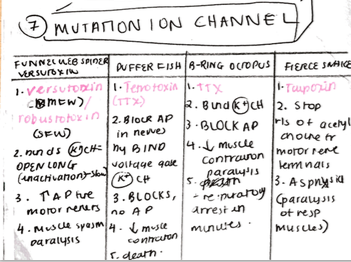 7 MUTATION ION CHANNEL
FUNNEL WEB SPIDER
VERSUTOXIN
1. versutoxin
(BMFW)/
robustotoxin
(SFW)
2. binds K+ CH =
OPEN LONG
(inactivation - slow)
3. ↑ AP fire
motor neurons
4. muscle spasm
paralysis
PUFFER FISH
1. Tetrotoxin
(TTX)
2. BLOCK AP
in nerves
by BIND
voltage gate
K+ CH
3. BLOCKS,
no AP
4. ↓ muscle
contraction
5. death.
B-RING OCTOPUS
1. TTX
2. Bind K+ CH
3. BLOCK AP
4. ↓ muscle
contraction
paralysis
5.
respiratory
arrest in
minutes.
FIERCE SNAKE
1. Taipoxin
2. Stop
rls of acetyl
choline fr
motor nerve
terminals
3. Asphyxia
(paralysis
of resp
muscles)